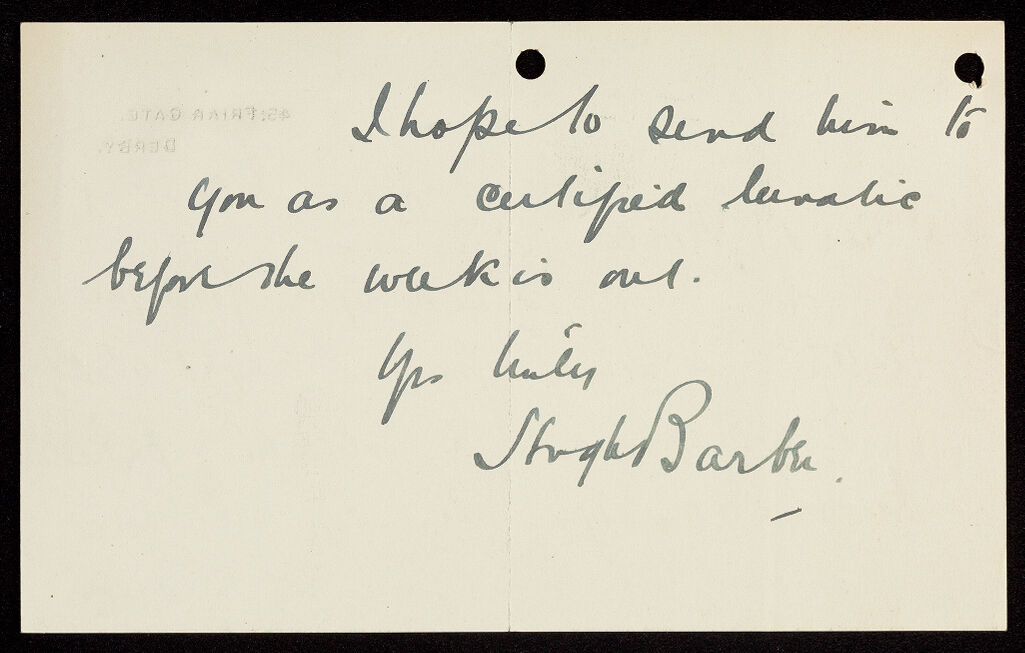 45: FRIAR GATE.
DERBY.
I hope to send him to
you as a certified lunatic
before the week is out.
Yrs truly
Hugh Barber.